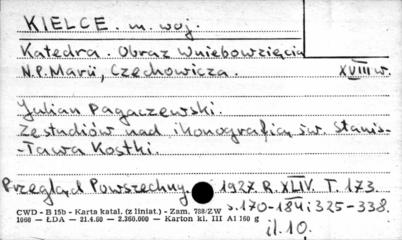 KIELCE. m. woj.
Katedra. Obraz Wniebowzięcia
N.P. Marii, Czechowicza. XVIII w.
Julian Pagaczewski.
Ze studiów nad ikonografią św. Stanis-
-ława Kostki.
Przegląd Powszechny. 1927. R. XLIV. T. 173.
s. 170-184 i 325-338.
CWD - B 15b - Karta katal. (z liniat.) - Zam. 788/ZW
1060 - ŁDA - 21.4.60 - 2.360.000 - Karton kl. III A1 160 g
il. 10.